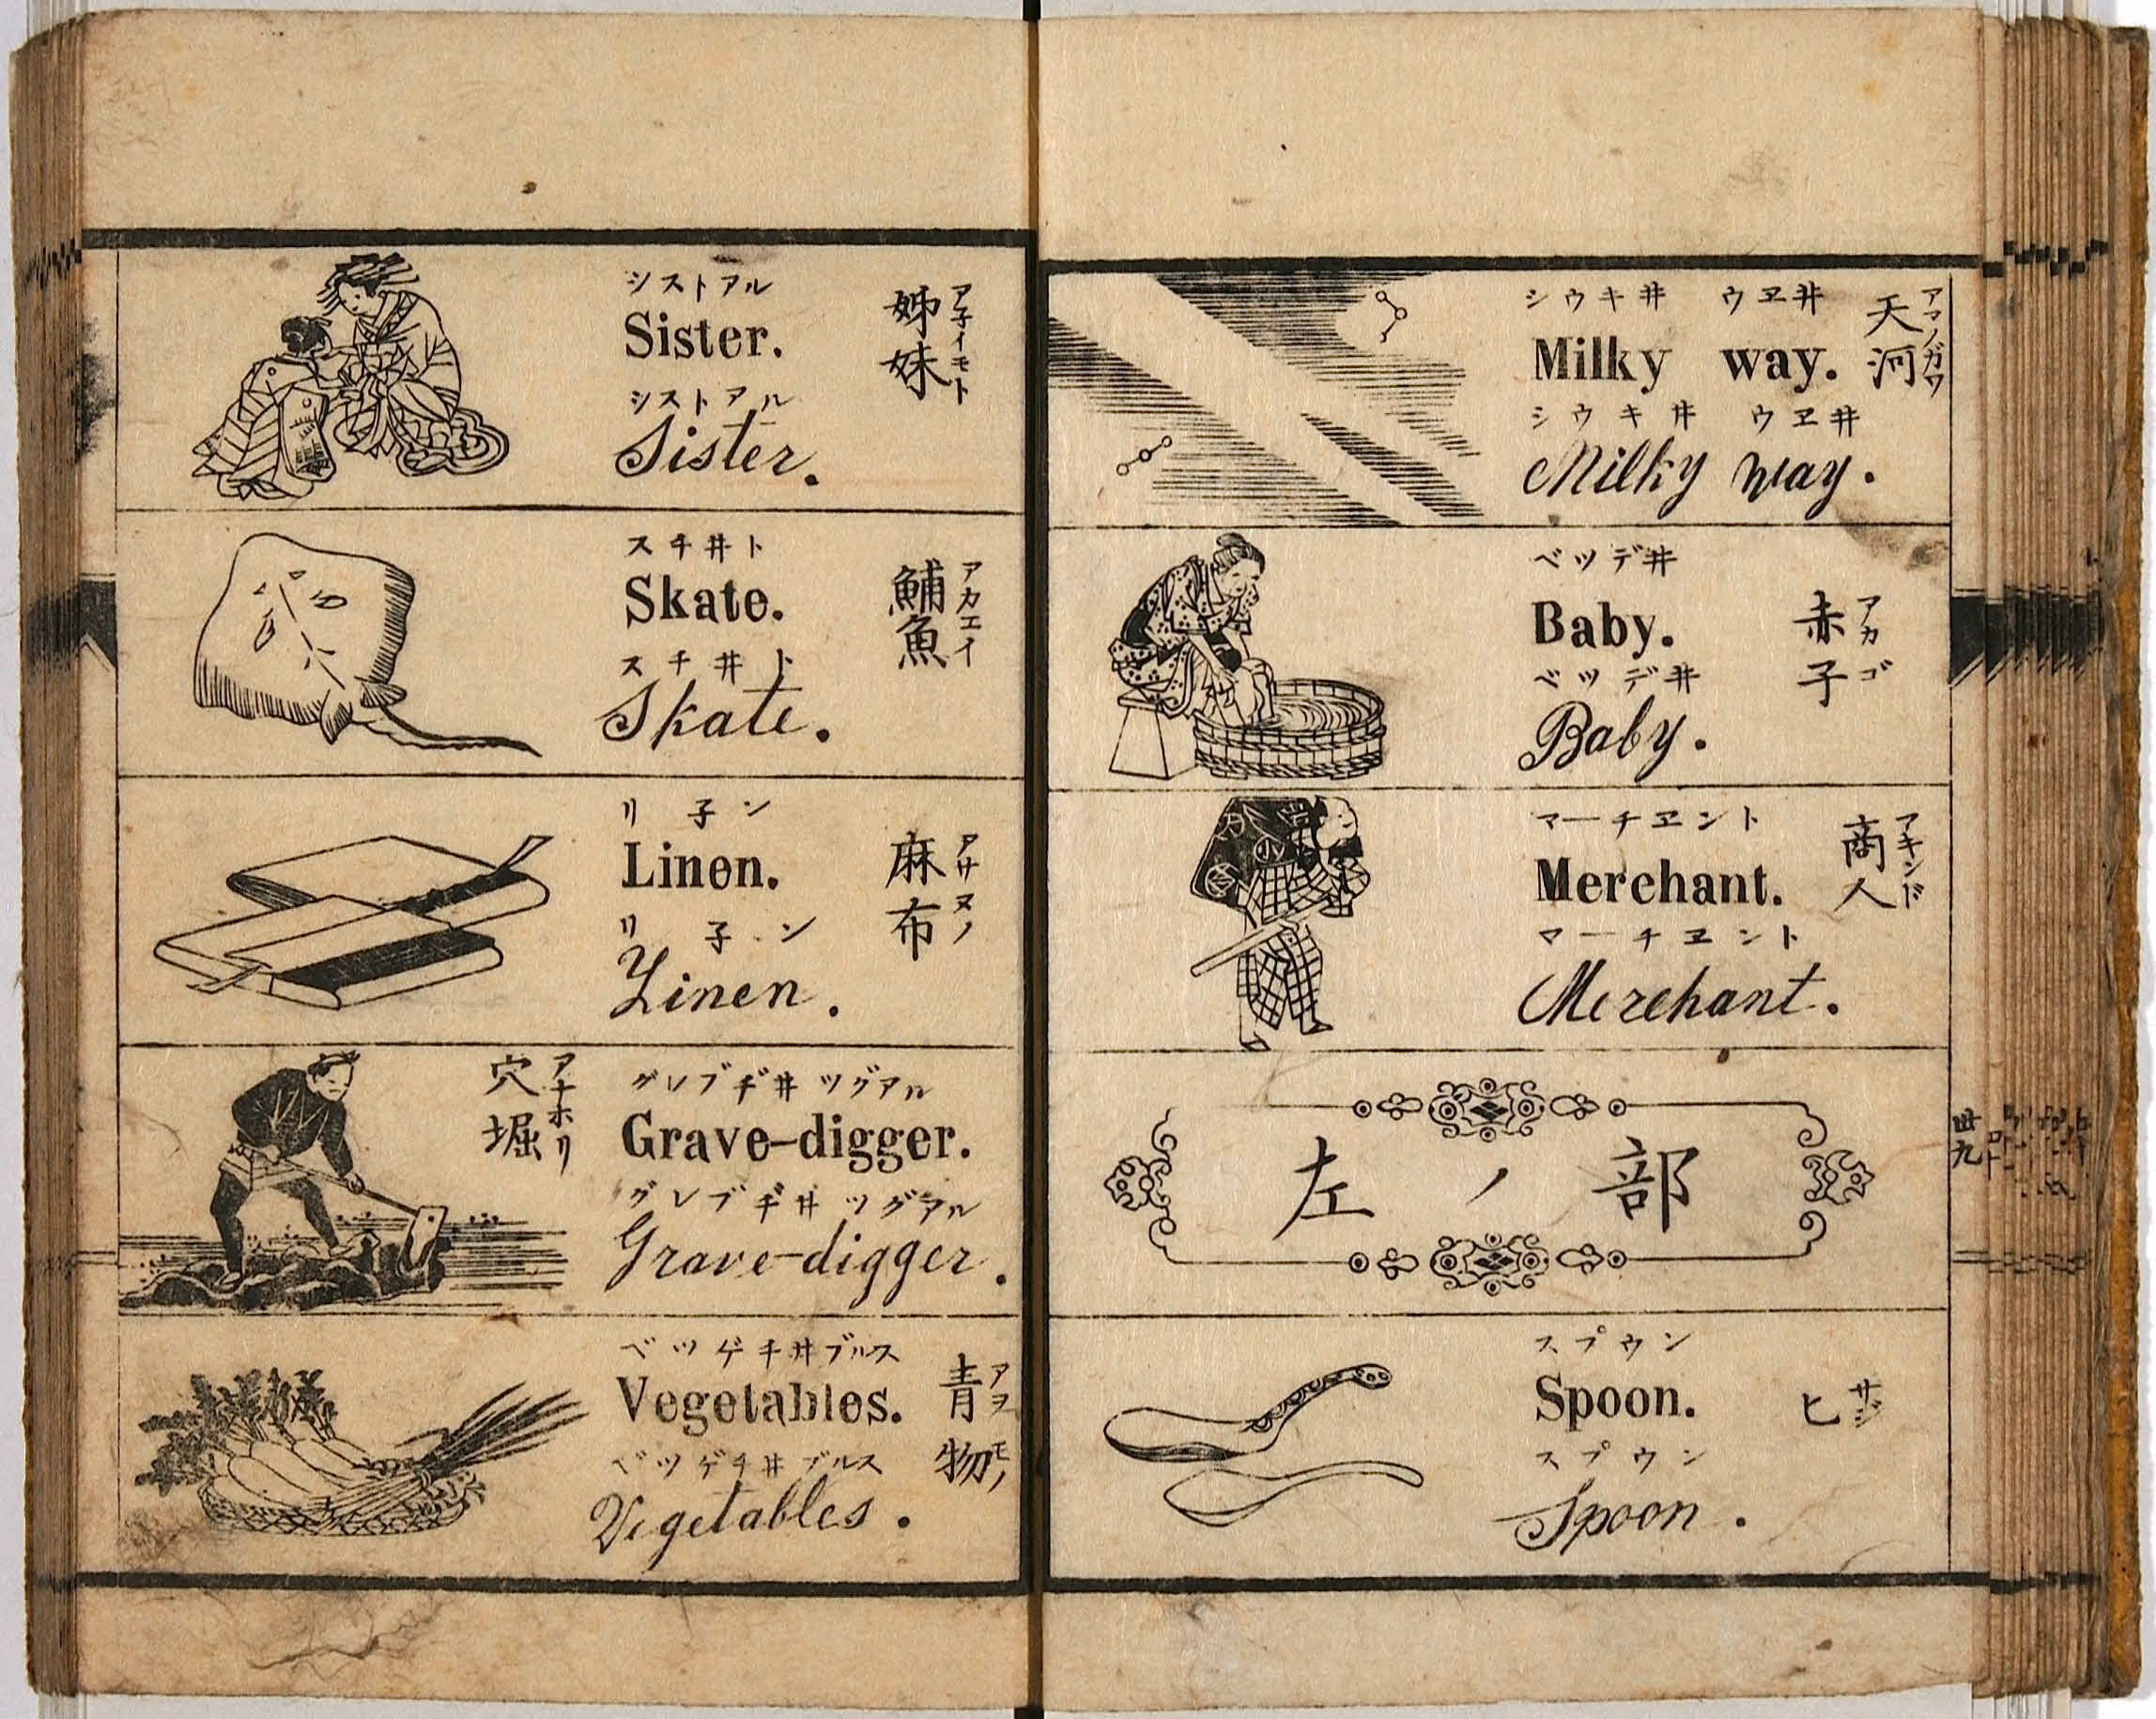 シストアル
Sister.
シストアル
Sister.
姉妹
ア子イモト
スチ井ト
Skate.
スチ井ト
Skate.
鯆魚
アカエイ
リ子ン
Linen.
リ子ン
Linen.
麻布
アサヌノ
穴堀
アナホリ
グレブヂ井ツグアル
Grave-digger.
グレブヂ井ツグアル
Grave-digger.
ベツゲチ井ブルス
Vegetables.
ベツゲチ井ブルス
Vegetables.
青物
アヲモノ
シウキ井 ウヱ井
Milky way.
シウキ井 ウヱ井
Milky way.
天河
アマノガワ
ベツデ井
Baby.
ベツデ井
Baby.
赤子
アカゴ
マーチヱント
Merchant.
マーチヱント
Merchant.
商人
アキンド
左ノ部
スプウン
Spoon.
スプウン
Spoon.
匕
サジ
丗九